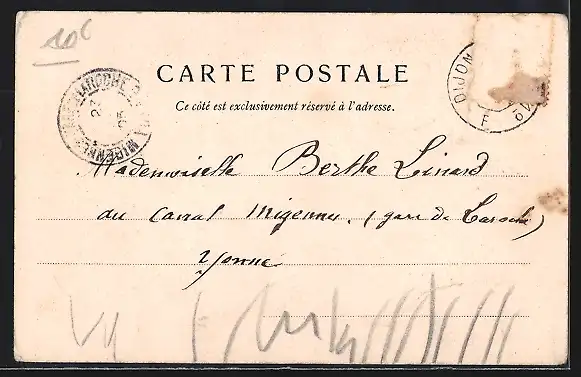 10c
CARTE POSTALE
Ce côté est exclusivement réservé à l'adresse.
LAROCHE MIGENNES
DIJON
F
Mademoiselle Berthe Linard
au Canal Migennes. (gare de Laroche)
Yonne